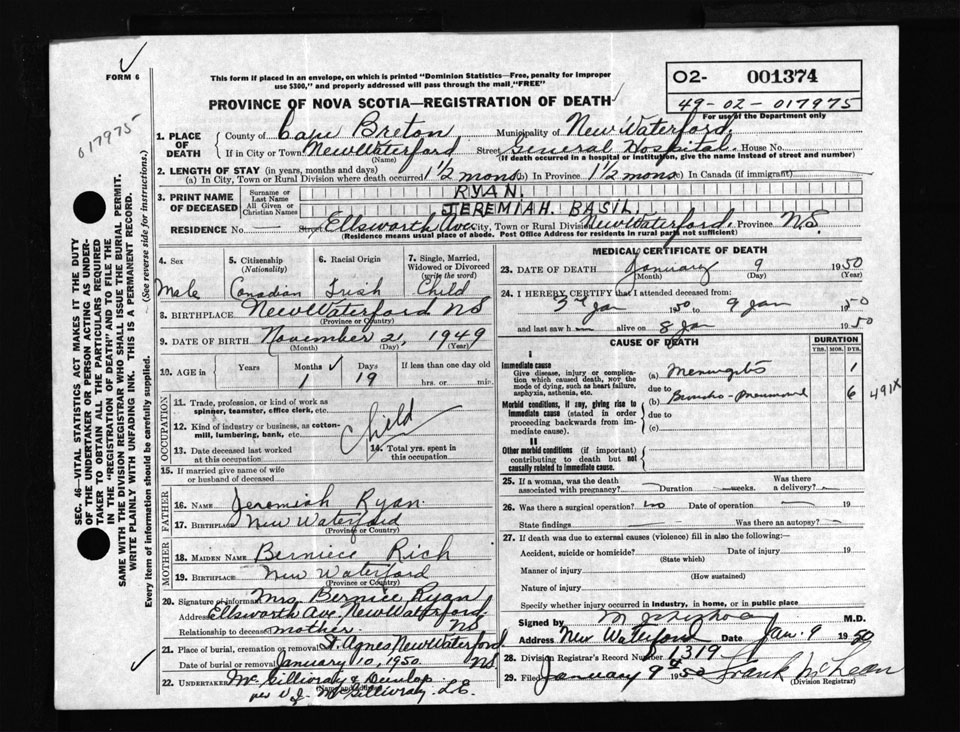 FORM 6
017975
This form if placed in an envelope, on which is printed "Dominion Statistics—Free, penalty for improper
use $300," and properly addressed will pass through the mail, "FREE"
PROVINCE OF NOVA SCOTIA—REGISTRATION OF DEATH
02- 001374
49-02-017975
For use of the Department only
1. PLACE OF DEATH
County of Cape Breton Municipality of New Waterford
If in City or Town New Waterford (Name) Street General Hospital. House No.
(If death occurred in a hospital or institution, give the name instead of street and number)
2. LENGTH OF STAY (in years, months and days)
(a) In City, Town or Rural Division where death occurred 1 1/2 mons (b) In Province 1 1/2 mons (c) In Canada (if immigrant)
3. PRINT NAME OF DECEASED
Surname or Last Name RYAN.
All Given or Christian Names JEREMIAH. BASIL.
RESIDENCE No. — Street Ellsworth Ave City, Town or Rural Division New Waterford, Province N.S.
(Residence means usual place of abode. Post Office Address for residents in rural parts not sufficient)
4. Sex Male
5. Citizenship (Nationality) Canadian
6. Racial Origin Irish
7. Single, Married, Widowed or Divorced (write the word) Child
8. BIRTHPLACE New Waterford NS
(Province or Country)
9. DATE OF BIRTH November 21, 1949
(Month) (Day) (Year)
10. AGE in Years Months 1 Days 19 If less than one day old
hrs. or min.
OCCUPATION
11. Trade, profession, or kind of work as
spinner, teamster, office clerk, etc.
12. Kind of industry or business, as cotton-
mill, lumbering, bank, etc.
Child
13. Date deceased last worked
at this occupation
14. Total yrs. spent in
this occupation
15. If married give name of wife
or husband of deceased
FATHER
16. Name Jeremiah Ryan.
17. Birthplace New Waterford
(Province or Country)
MOTHER
18. Maiden Name Berniece Rich
19. Birthplace New Waterford
(Province or Country)
20. Signature of informant Mrs. Bernice Ryan
Address Ellsworth Ave. New Waterford NS
Relationship to deceased mother.
21. Place of burial, cremation or removal St. Agnes New Waterford NS.
Date of burial or removal January 10, 1950.
22. UNDERTAKER McGillivray & Dunlop
(Name and Address)
per V.J. McGillivray, L.E.
MEDICAL CERTIFICATE OF DEATH
23. DATE OF DEATH January 9 1950
(Month) (Day) (Year)
24. I HEREBY CERTIFY that I attended deceased from:
3rd Jan 1950 to 9 Jan 1950
and last saw h alive on 8 Jan 1950
CAUSE OF DEATH
DURATION
YRS. MOS. DYS.
I
Immediate cause
Give disease, injury or complica-
tion which caused death, NOT the
mode of dying, such as heart failure,
asphyxia, asthenia, etc.
(a) Meningitis 1
due to
(b) Broncho-pneumonia 6
491X
Morbid conditions, if any, giving rise to
immediate cause (stated in order
proceeding backwards from im-
mediate cause).
due to
(c)
II
Other morbid conditions (if important)
contributing to death but not
causally related to immediate cause.
25. If a woman, was the death
associated with pregnancy? Duration weeks. Was there
a delivery?
26. Was there a surgical operation? no Date of operation 19
State findings Was there an autopsy?
27. If death was due to external causes (violence) fill in also the following:
Accident, suicide or homicide? Date of injury 19
(State which)
Manner of injury
(How sustained)
Nature of injury
Specify whether injury occurred in industry, in home, or in public place
Signed by M.D.
Address New Waterford Date Jan. 9 1950
28. Division Registrar's Record Number 1319
29. Filed January 9th 1950 Frank McLean
(Division Registrar)
SEC. 46—VITAL STATISTICS ACT MAKES IT THE DUTY
OF THE UNDERTAKER OR PERSON ACTING AS UNDER-
TAKER TO OBTAIN ALL THE PARTICULARS REQUIRED
IN THE "REGISTRATION OF DEATH" AND TO FILE THE
SAME WITH THE DIVISION REGISTRAR WHO SHALL ISSUE THE BURIAL PERMIT.
WRITE PLAINLY WITH UNFADING INK. THIS IS A PERMANENT RECORD.
Every item of information should be carefully supplied. (See reverse side for instructions.)